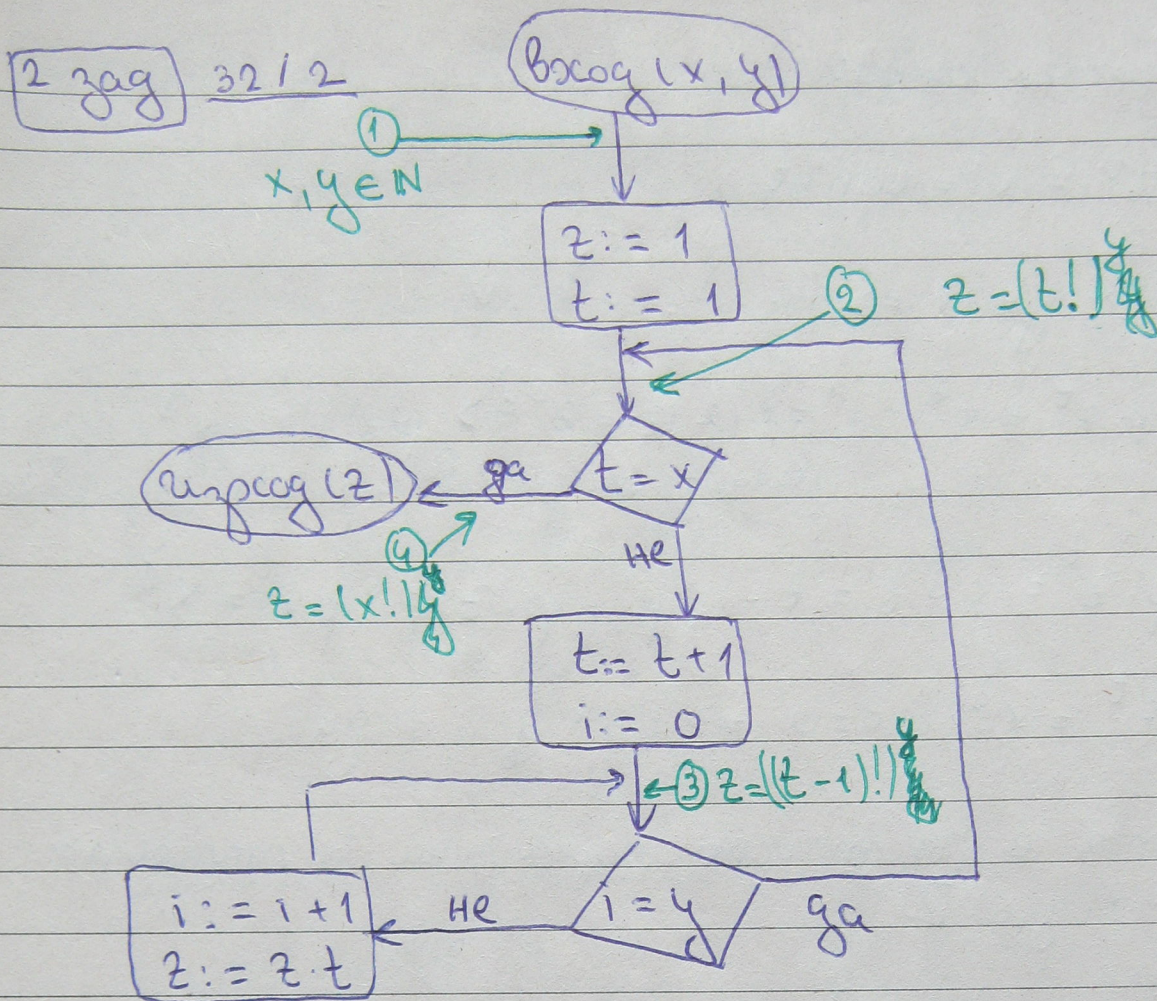 2 зад 32 / 2
вход (x, y)
①
x, y ∈ ℕ
z := 1
t := 1
② z = (t!)^y
t = x
да
изход (z)
④
z = (x!)^y
не
t := t + 1
i := 0
③ z = ((t - 1)!)^y
i = y
да
не
i := i + 1
z := z . t